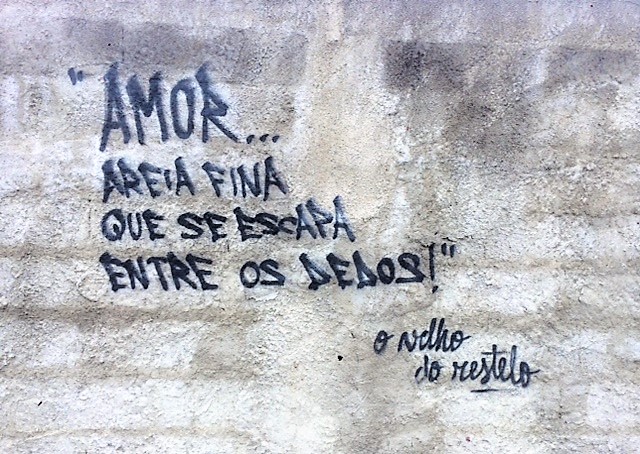 "AMOR...
AREIA FINA
QUE SE ESCAPA
ENTRE OS DEDOS!"
o velho
do restelo